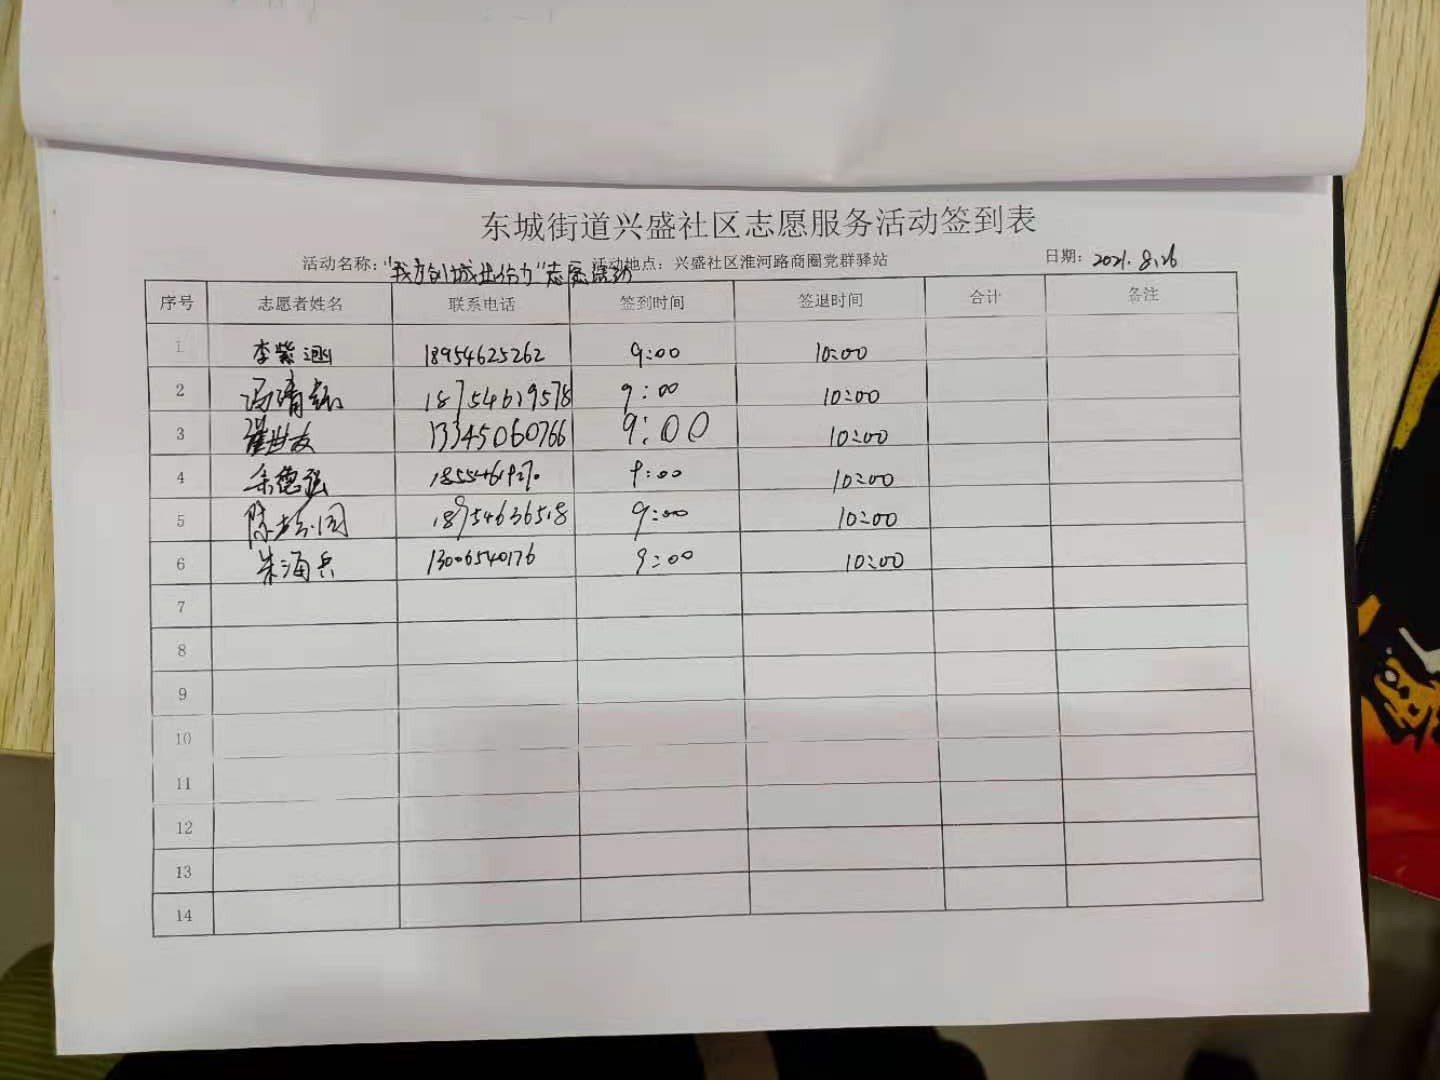 东城街道兴盛社区志愿服务活动签到表
活动名称：“我为创城出份力”志愿活动 活动地点：兴盛社区淮河路商圈党群驿站 日期：2021.8.26
序号 志愿者姓名 联系电话 签到时间 签退时间 合计 备注
1 李紫 18954625262 9:00 10:00
2 冯靖 18754619578 9:00 10:00
3 崔世友 13345060766 9:00 10:00
4 余德强 9:00 10:00
5 陈 18954636518 9:00 10:00
6 朱海兵 13006540176 9:00 10:00
7
8
9
10
11
12
13
14